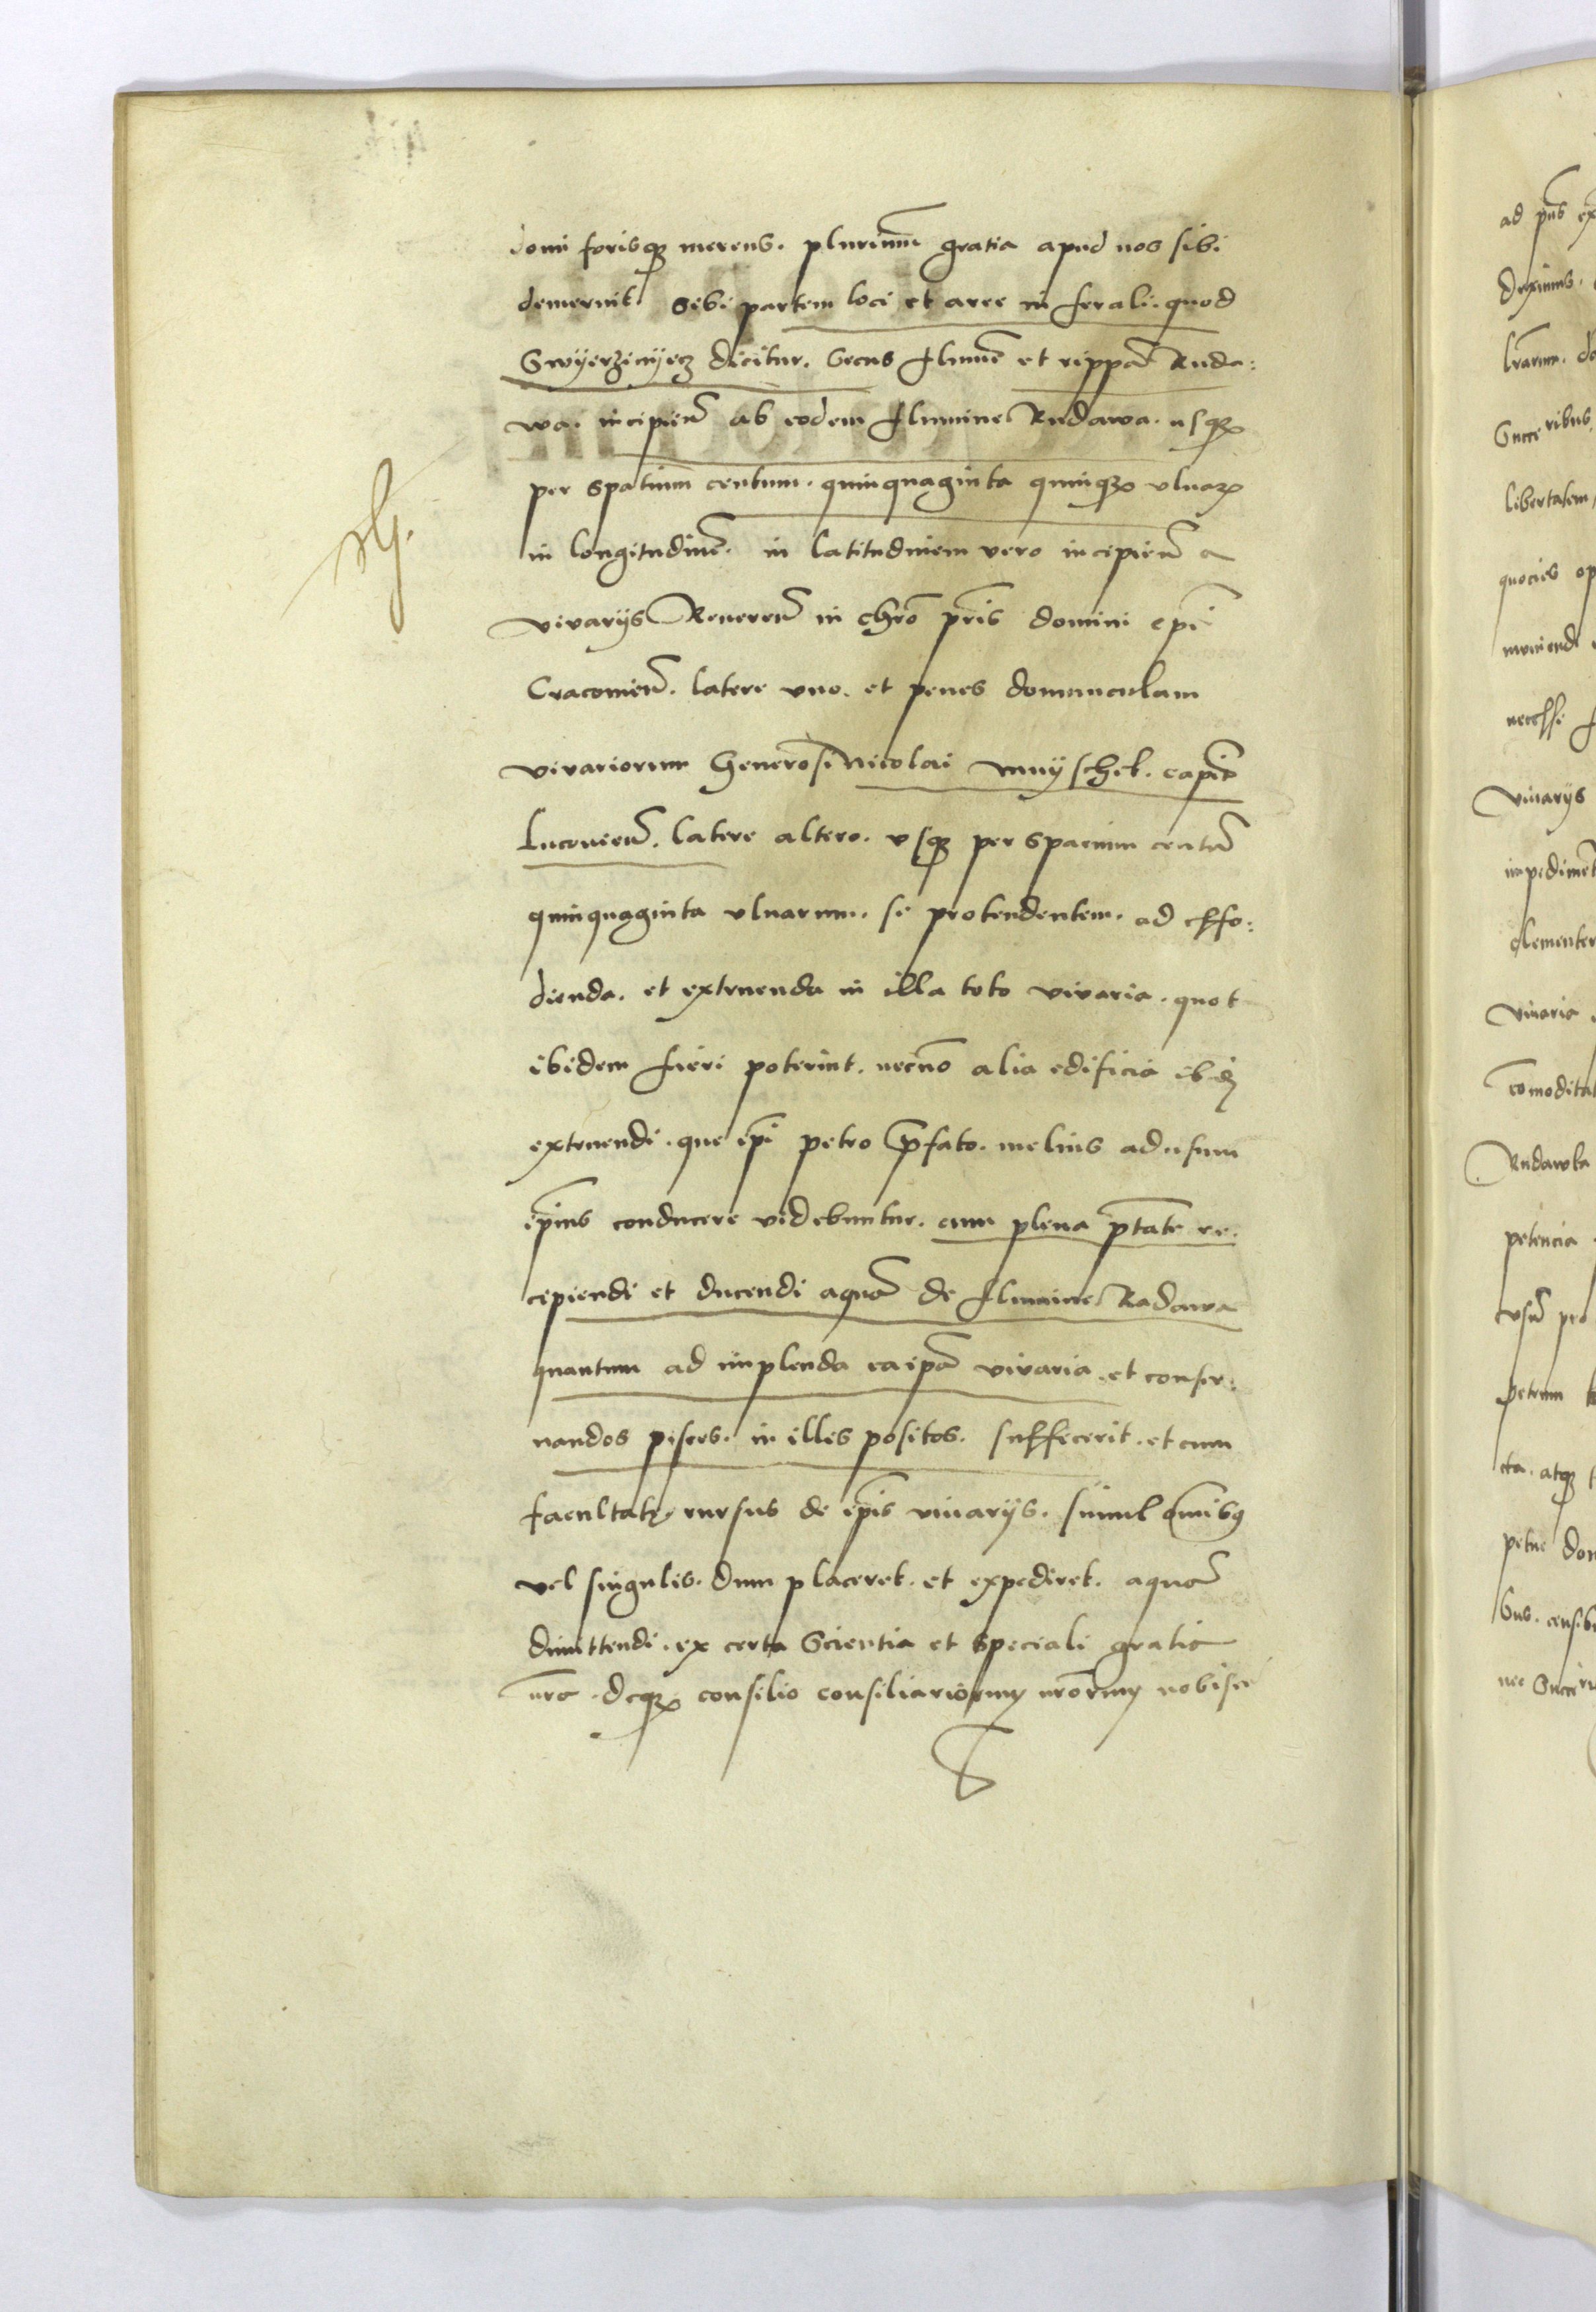 domi forisq merens. plurimū gratia apud nos sibi
demeruit. Sibi partem loci et aree in ferali. quod
Swyerzinyecz dicitur. Secus flumē et rippā Ruda:
wa. incipien̄ ab eodem flumine Rudawa. usq
per spatium centum. quinquaginta quinq ulnaꝝ
in longitudinē. in latitudinem vero incipien̄ a
vivariis Reveren̄ in chr̄o pr̄is domini ep̄i
Cracovien̄. latere uno. et penes domunculam
vivariorum Generosi Nicolai capī
Lucovien̄. latere altero. usq per spacium centū
quinquaginta ulnarum. se protendentem. ad effo:
dienda. et extruenda in illa toto vivaria. quot
ibidem fieri poterint. necnō alia edificia ibid
extruendi. que ip̄i petro p̄fato. melius ad usum
ip̄ius conducere videbuntur. cum plena p̄tate re.
cipiendi et ducendi aquā de flumine Radawa
quantum ad implenda eaip̄a vivaria. et conser:
vandos pisces. in illis positos. suffecerit. et cum
facultate rursus de ip̄is vivariis. simul om̄ibꝫ
vel singulis. dum placeret. et expediret. aquā
dimittendi. ex certa Scientia et speciali gratia
nr̄a. deq consilio consiliariorum nr̄orum nobisc̄
ad pn̄s
libertatem
quocies
vivariis
clementer
vivaria
Rudawka
petencia
usū pro
petrum
cta. atq